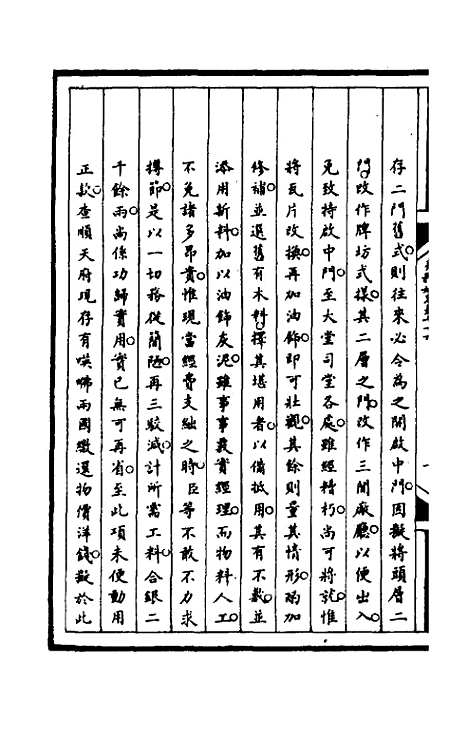 存二門舊式則往來必令為之開啟中門因擬將頭層二
門改作牌坊式樣其二層之門改作三間廠廳以便出入
免致持啟中門至大堂司堂各處雖經糟朽尚可將就惟
將瓦片改換再加油飾即可壯觀其餘則量其情形酌加
修補並選舊有木料擇其堪用者以備抵用其有不敷並
添用新料加以油飾灰泥雖事事覈實經理而物料人工
不免諸多昂貴惟現當經費支絀之時臣等不敢不力求
撙節是以一切務從簡陋再三駁減計所需工料合銀二
千餘兩尚係功歸實用實已無可再省至此項未便動用
正款查順天府現存有𠸄咈兩國繳還物價洋錢擬於此